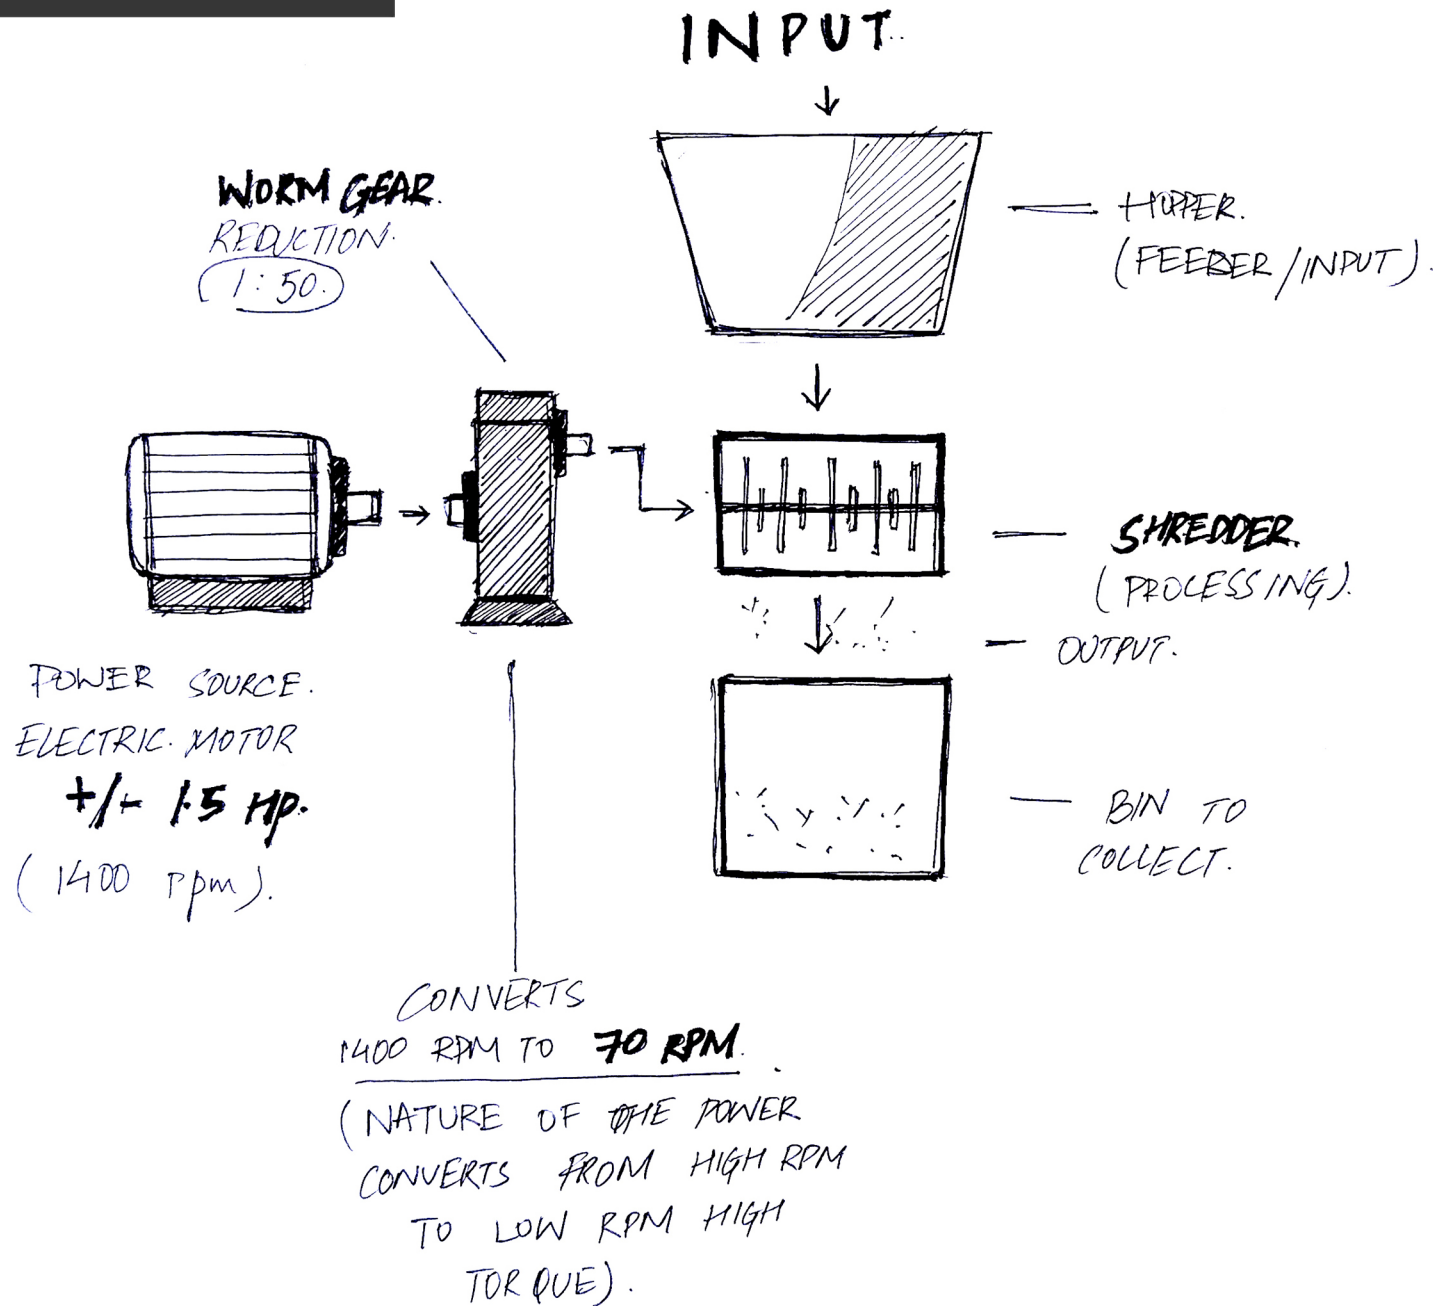 INPUT
WORM GEAR.
REDUCTION.
1:50.
HOPPER.
(FEEDER/INPUT).
SHREDDER.
(PROCESSING).
OUTPUT.
POWER SOURCE.
ELECTRIC. MOTOR
+/- 1.5 HP.
(1400 rpm).
BIN TO
COLLECT.
CONVERTS
1400 RPM TO 70 RPM.
(NATURE OF THE POWER
CONVERTS FROM HIGH RPM
TO LOW RPM HIGH
TORQUE).